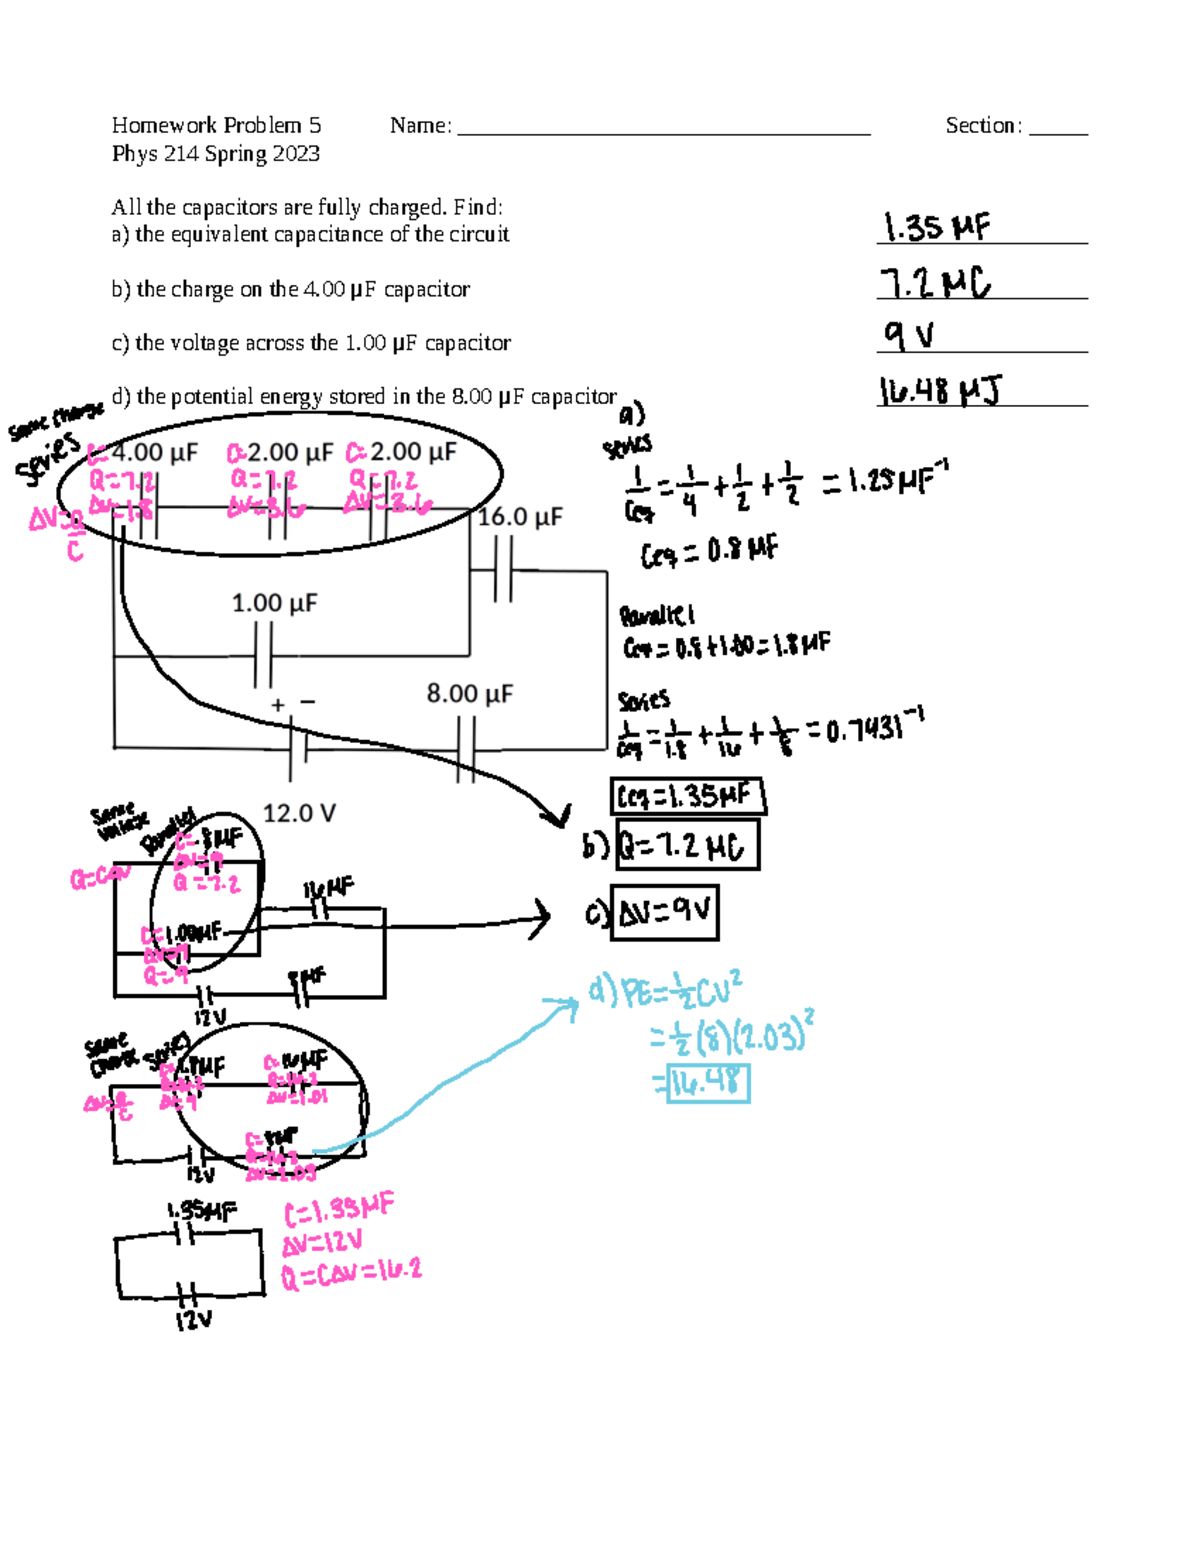 Homework Problem 5 Name: ____ Section: ____
Phys 214 Spring 2023
All the capacitors are fully charged. Find:
a) the equivalent capacitance of the circuit 1.35 μF
b) the charge on the 4.00 μF capacitor 7.2 μC
c) the voltage across the 1.00 μF capacitor 9 V
d) the potential energy stored in the 8.00 μF capacitor 16.48 μJ
Same charge
Series
C= 4.00 μF C= 2.00 μF C= 2.00 μF
Q=7.2 Q=7.2 Q=7.2
ΔV=1.8 ΔV=3.6 ΔV=3.6
ΔV=Q/C
16.0 μF
1.00 μF
+ −
8.00 μF
12.0 V
a)
Series
1/Ceq = 1/4 + 1/2 + 1/2 = 1.25 μF⁻¹
Ceq = 0.8 μF
Parallel
Ceq = 0.8+1.00 = 1.8 μF
Series
1/Ceq = 1/1.8 + 1/16 + 1/8 = 0.7431⁻¹
Ceq = 1.35 μF
b) Q = 7.2 μC
c) ΔV = 9V
d) PE = ½CV²
= ½(8)(2.03)²
= 16.48
Same
voltage
Parallel
C= .8 μF
ΔV=9
Q=7.2
Q=CΔV
16 μF
C= 1.00 μF
ΔV=9
Q=9
8 μF
12V
Same
charge
Series
1.8 μF
C= 16 μF
Q=16.2
ΔV=9
ΔV=1.01
ΔV=Q/C
C= 8 μF
Q=16.2
ΔV=2.03
12V
1.35 μF
C=1.35 μF
ΔV=12V
Q=CΔV=16.2
12V